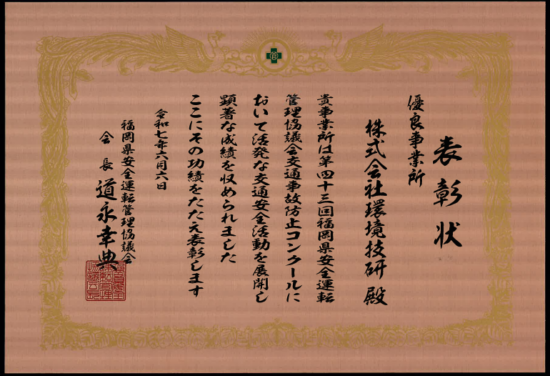 表彰状
優良事業所
株式会社環境技研 殿
貴事業所は第四十三回福岡県安全運転
管理協議会交通事故防止コンクールに
おいて活発な交通安全活動を展開し
顕著な成績を収められました
ここにその功績をたたえ表彰します
令和七年六月六日
福岡県安全運転管理協議会
会長 道永幸典